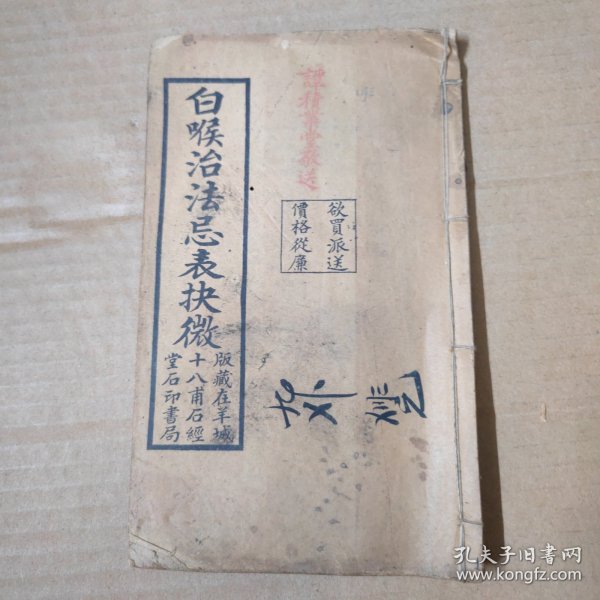 白喉治法忌表抉微
版藏在羊城
十八甫石經
堂石印書局
欲買派送
價格從廉
敬送
孔夫子旧书网
www.kongfz.com